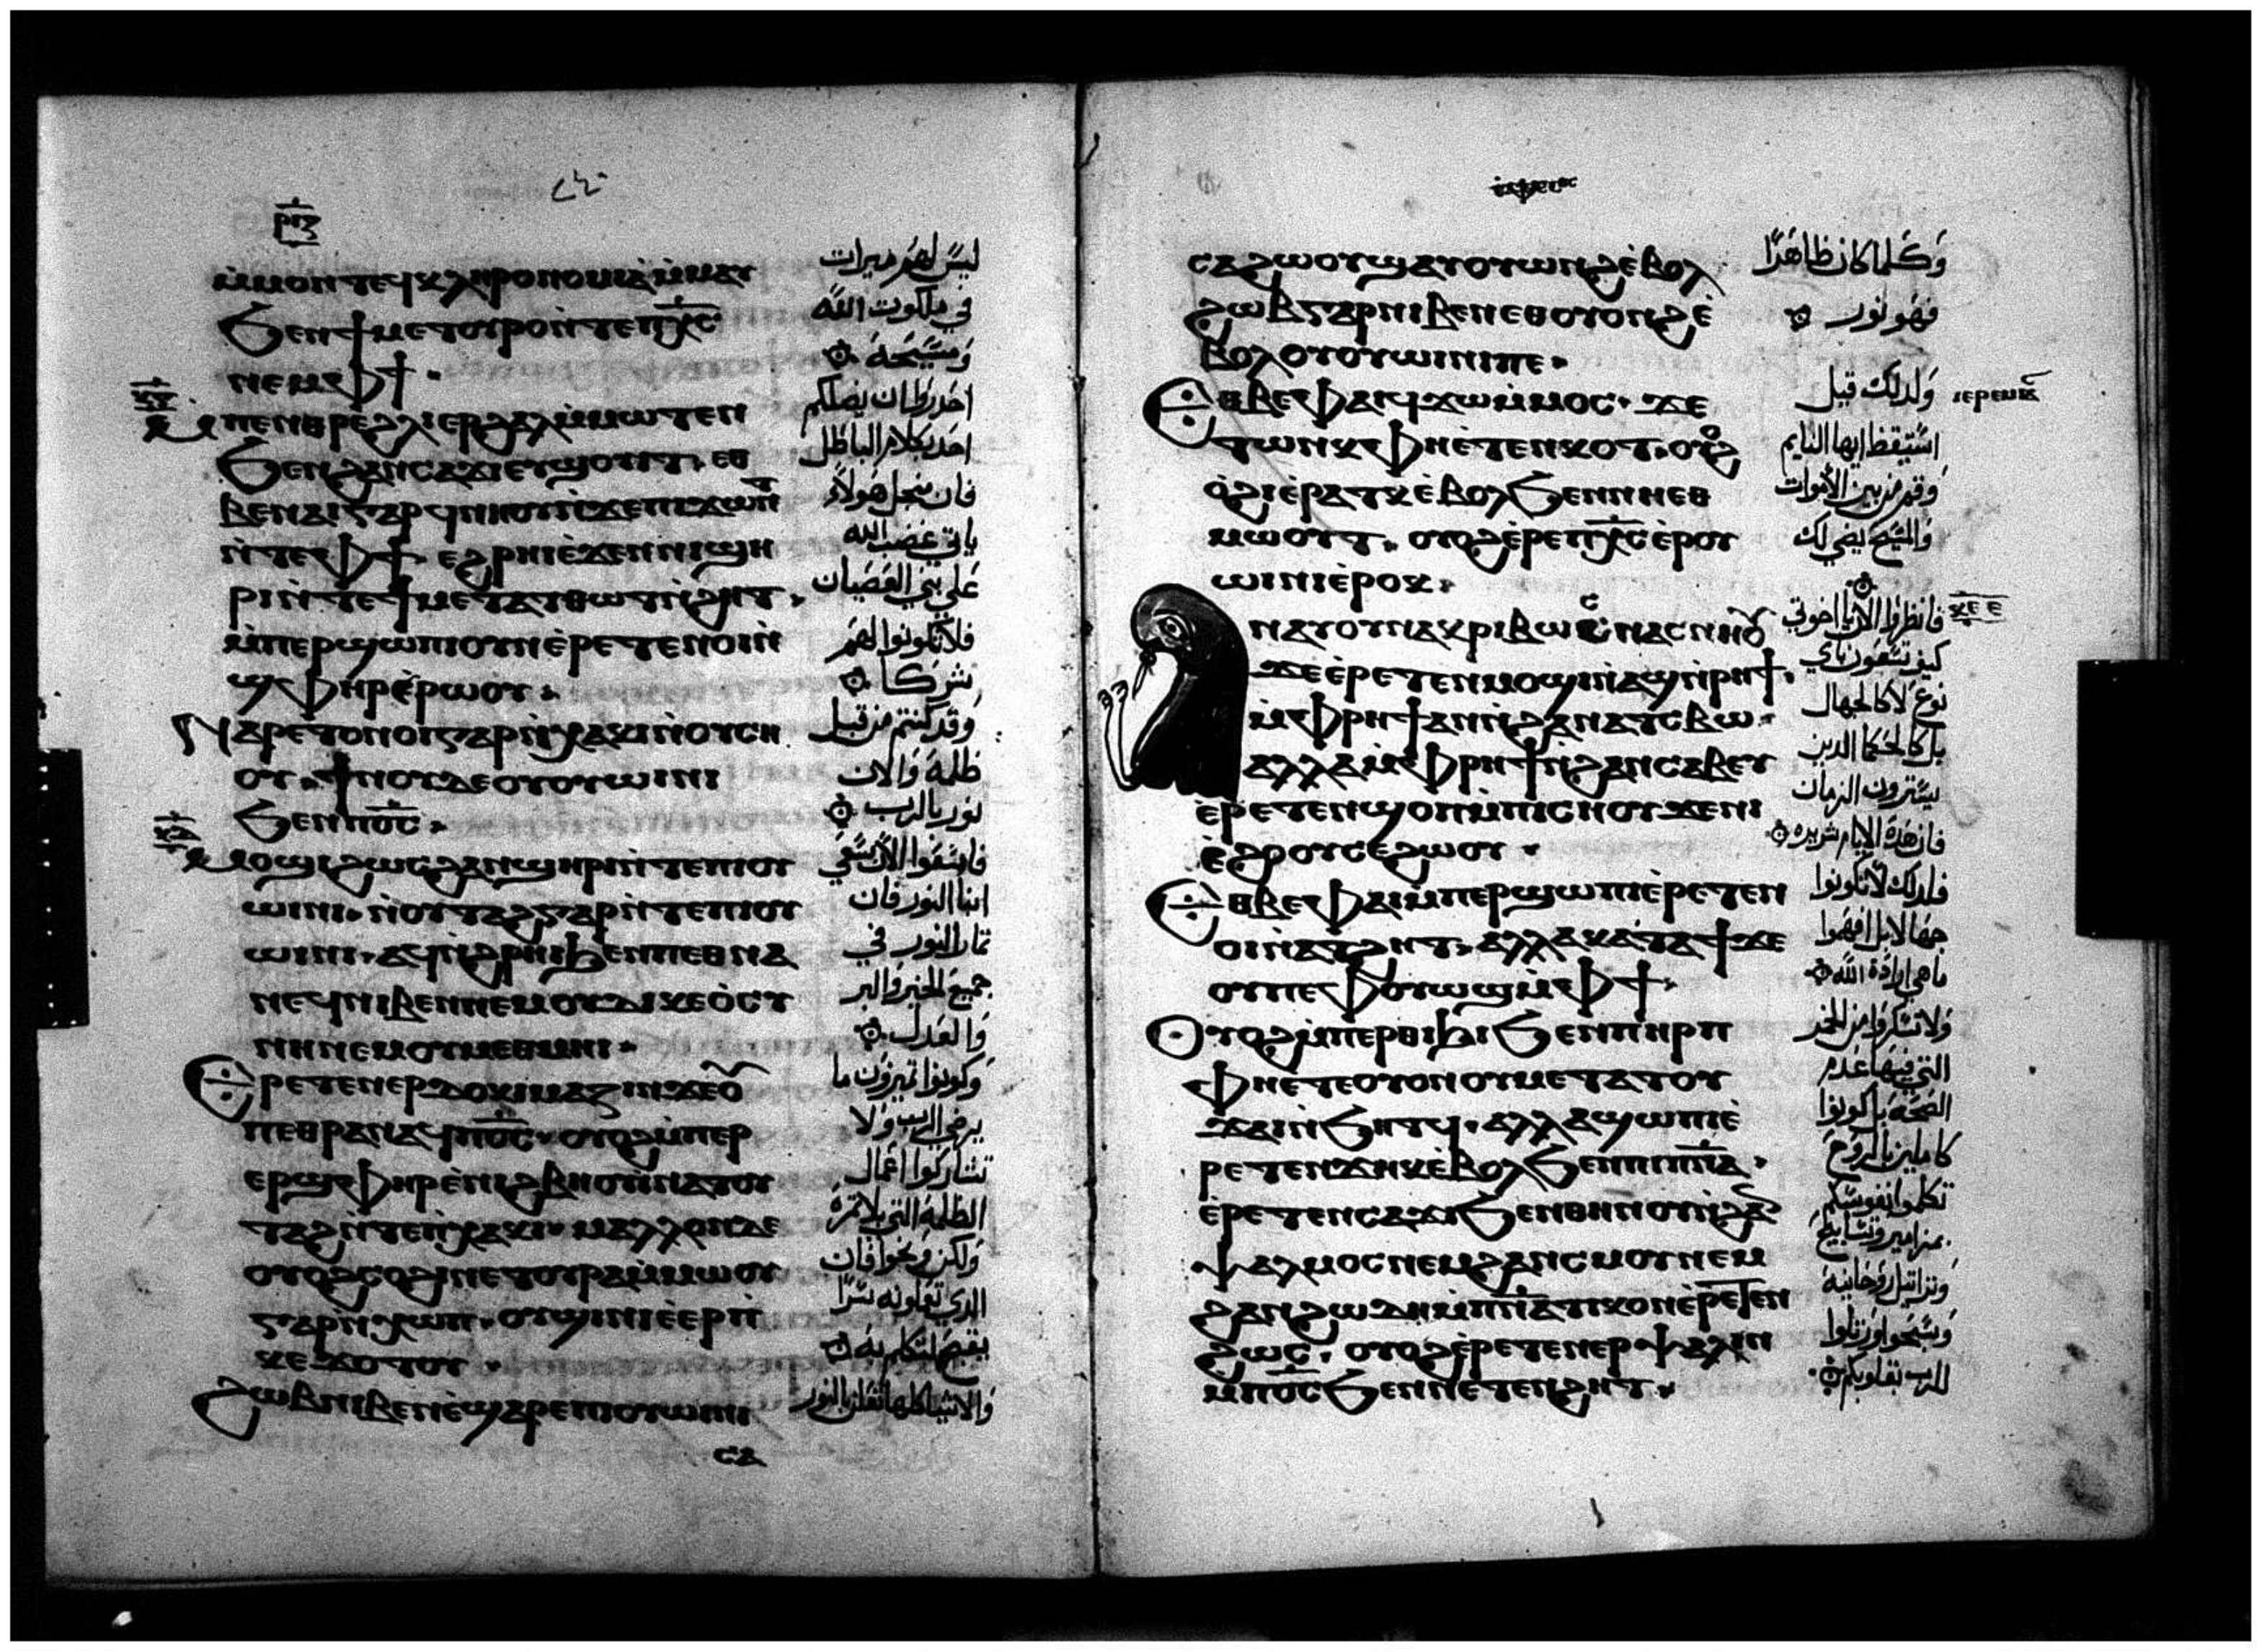 ⲣⲓⲍ
ⲙ̀ⲙⲟⲛⲧⲉϥⲕⲗⲏⲣⲟⲛⲟⲙⲓⲁⲙ̀ⲙⲁⲩ
ϧⲉⲛϯⲙⲉⲧⲟⲩⲣⲟⲛ̀ⲧⲉⲡⲭ̅ⲥ̅
ⲛⲉⲙⲫϯ
ⲙ̀ⲡⲉⲛⲑⲣⲉϩⲗⲓⲉⲣϩⲁⲗⲙ̀ⲙⲱⲧⲉⲛ
ϧⲉⲛϩⲁⲛⲥⲁϫⲓⲉⲩϣⲟⲩⲓⲧ· ⲉⲑ
ⲃⲉⲛⲁⲓⲅⲁⲣϥⲛⲏⲟⲩⲛ̀ϫⲉⲡⲓϫⲱⲛⲧ
ⲛ̀ⲧⲉⲫϯ ⲉϩⲣⲏⲓⲉ̀ϫⲉⲛⲛⲓϣⲏ
ⲣⲓⲛ̀ⲧⲉϯⲙⲉⲧⲁⲧⲑⲱⲧⲛ̀ϩⲏⲧ·
ⲙ̀ⲡⲉⲣϣⲱⲡⲓⲟⲩⲛⲉ̀ⲣⲉⲧⲉⲛⲟⲓⲛ̀
ϣⲫⲏⲣⲉ̀ⲣⲱⲟⲩ·
ⲛⲁⲣⲉⲧⲟⲛⲟⲓⲅⲁⲣⲛ̀ⲭⲁⲕⲓⲛ̀ⲟⲩⲥⲏ
ⲟⲩ· ϯⲛⲟⲩⲇⲉⲟⲩⲟⲩⲱⲓⲛⲓ
ϧⲉⲛⲡⲟ̅ⲥ̅·
ⲙⲟϣⲓϩⲱⲥϩⲁⲛϣⲏⲣⲓⲛ̀ⲧⲉⲡⲓⲟⲩ
ⲱⲓⲛⲓ· ⲛ̀ⲟⲩⲧⲁϩⲅⲁⲣⲛ̀ⲧⲉⲡⲓⲟⲩ
ⲱⲓⲛⲓ· ⲁϥⲛ̀ϩⲣⲏⲓϧⲉⲛⲡⲉⲑⲛⲁ
ⲛⲉϥⲛⲓⲃⲉⲛⲛⲉⲙⲟⲩⲇⲓⲕⲉⲟ̀ⲥⲩ
ⲛⲏⲛⲉⲙⲟⲩⲙⲉⲑⲙⲏⲓ·
ⲉⲣⲉⲧⲉⲛⲉⲣⲇⲟⲕⲓⲙⲁⲍⲓⲛϫⲉⲟⲩ
ⲡⲉⲑⲣⲁⲛⲁϥⲙⲡⲟ̅ⲥ̅· ⲟⲩⲟϩⲙ̀ⲡⲉⲣ
ⲉⲣϣⲫⲏⲣⲉ̀ⲛⲓϩⲃⲏⲟⲩⲓⲛⲁⲧⲟⲩ
ⲧⲁϩⲛ̀ⲧⲉⲡⲭⲁⲕⲓ· ⲙⲁⲗⲗⲟⲛⲇⲉ
ⲟⲩⲟϩⲥⲟϩⲓⲛⲉⲧⲟⲩⲣⲁⲙ̀ⲙⲱⲟⲩ
ⲅⲁⲣⲛ̀ⲭⲱⲡ· ⲟⲩϣⲓⲛⲓⲉ̀ⲉⲣⲡ̀
ⲕⲉϫⲟⲧⲟⲩ·
ϩⲱⲃⲛⲓⲃⲉⲛⲉ̀ϣⲁⲣⲉⲡⲓⲟⲩⲱⲓⲛⲓ
ⲥⲁ
ليس لهم ميرات
في ملكوت الله
ومسيحه
احد ان يضلكم
احد بكلام الباطل
فان منجل هولاء
ياتي غضب الله
علي بني العصيان
فلا تكونوا لهم
شركا
وقد كنتم من قبل
ظلمة والان
نور بالرب
فاسعوا الان سعي
ابنا النور فان
تمار النور في
جميع الخير والبر
والعدل
وكونوا تميزون ما
يرضي الرب ولا
تشاركوا اعمال
الظلمة التي بلا تمرة
ولكن وبخوا فان
الدي تفعلونه سرا
يقبح التكلم به
والاشيا كلها تعلن النور
ⲥⲁϩⲱⲟⲩϣⲁⲩⲟⲩⲱⲛϩⲉ̀ⲃⲟⲗ
ϩⲱⲃⲅⲁⲣⲛⲓⲃⲉⲛⲉⲑⲟⲩⲟⲛϩⲉ̀
ⲃⲟⲗⲟⲩⲟⲩⲱⲓⲛⲓⲡⲉ·
ⲉⲑⲃⲉⲫⲁⲓϥϫⲱⲙ̀ⲙⲟⲥ· ϫⲉ
ⲧⲱⲛⲕⲫⲏⲉ̀ⲧⲉⲛⲕⲟⲧ· ⲟⲩⲟϩ
ⲟ̀ϩⲓⲉ̀ⲣⲁⲧⲕⲉ̀ⲃⲟⲗϧⲉⲛⲛⲏⲉⲑ
ⲙⲱⲟⲩⲧ· ⲟⲩⲟϩⲉ̀ⲣⲉⲡⲭ̅ⲥ̅ⲉ̀ⲣⲟⲩ
ⲱⲓⲛⲓⲉ̀ⲣⲟⲕ·
ⲁⲛⲁⲩⲟⲩⲛⲁⲕⲣⲓⲃⲱⲥⲛⲁⲥⲛⲏⲟⲩ
ϫⲉⲉ̀ⲣⲉⲧⲉⲛⲙⲟϣⲓⲛ̀ⲁϣⲛ̀ⲣⲏϯ·
ⲙ̀ⲫⲣⲏϯⲁⲛⲛ̀ϩⲁⲛⲁⲧⲥⲃⲱ·
ⲁⲗⲗⲁⲙ̀ⲫⲣⲏϯⲛ̀ϩⲁⲛⲥⲁⲃⲉⲩ
ⲉ̀ⲣⲉⲧⲉⲛϣⲟⲡⲙ̀ⲡⲓⲥⲏⲟⲩϫⲉⲛⲓ
ⲉ̀ϩⲟⲟⲩⲥⲉϩⲱⲟⲩ·
ⲉⲑⲃⲉⲫⲁⲓⲙ̀ⲡⲉⲣϣⲱⲡⲓⲉ̀ⲣⲉⲧⲉⲛ
ⲟⲓⲛ̀ⲁⲧϩⲏⲧ· ⲁⲗⲗⲁⲕⲁ̀ⲧⲁϯϫⲉ
ⲟⲩⲡⲉⲫⲟⲩⲱϣⲙ̀ⲫϯ·
ⲟⲩⲟϩⲙ̀ⲡⲉⲣⲑⲓϧⲓϧⲉⲛⲡⲏⲣⲡ
ⲫⲏⲉⲧⲉⲟⲩⲟⲛⲟⲩⲙⲉⲧⲁⲧⲟⲩ
ϫⲁⲓⲛ̀ϧⲏⲧϥ· ⲁⲗⲗⲁϣⲱⲡⲓⲉ̀
ⲣⲉⲧⲉⲛϫⲏⲕⲉ̀ⲃⲟⲗϧⲉⲛⲡⲓⲡ̅ⲛ̅ⲁ̅·
ⲉ̀ⲣⲉⲧⲉⲛⲥⲁϫⲓϧⲉⲛⲑⲏⲛⲟⲩⲛ̀ϩⲁⲛ
ⲯⲁⲗⲙⲟⲥⲛⲉⲙϩⲁⲛⲥⲙⲟⲩⲛⲉⲙ
ϩⲁⲛϩⲱⲇⲏⲙ̀ⲡ̅ⲛ̅ⲁ̅ⲧⲓⲕⲟⲛⲉ̀ⲣⲉⲧⲉⲛ
ϩⲱⲥ· ⲟⲩⲟϩⲉ̀ⲣⲉⲧⲉⲛⲉⲣⲯⲁⲗⲓⲛ
ⲙⲡⲟ̅ⲥ̅ϧⲉⲛⲛⲉⲧⲉⲛϩⲏⲧ·
وكلما كان ظاهرا
فهو نور
ولدلك قيل
استيقظ ايها النايم
وقم من بين الاموات
والمسيح يضي لك
فانظروا الان يا اخوتي
كيف تسعون باي
نوع لا كالجهال
بل كالحكما الدين
يشترون الزمان
فان هده الايام شريره
فلدلك لا تكونوا
جهالا بل افهموا
ما هي ارادة الله
ولا تسكروا من الخمر
التي فيها عدم
الصحة بل كونوا
كاملين بالروح
تكلموا نفوسكم
بمزامير وتسابيح
وتراتيل روحانية
وسبحوا ورتلوا
للرب بقلوبكم